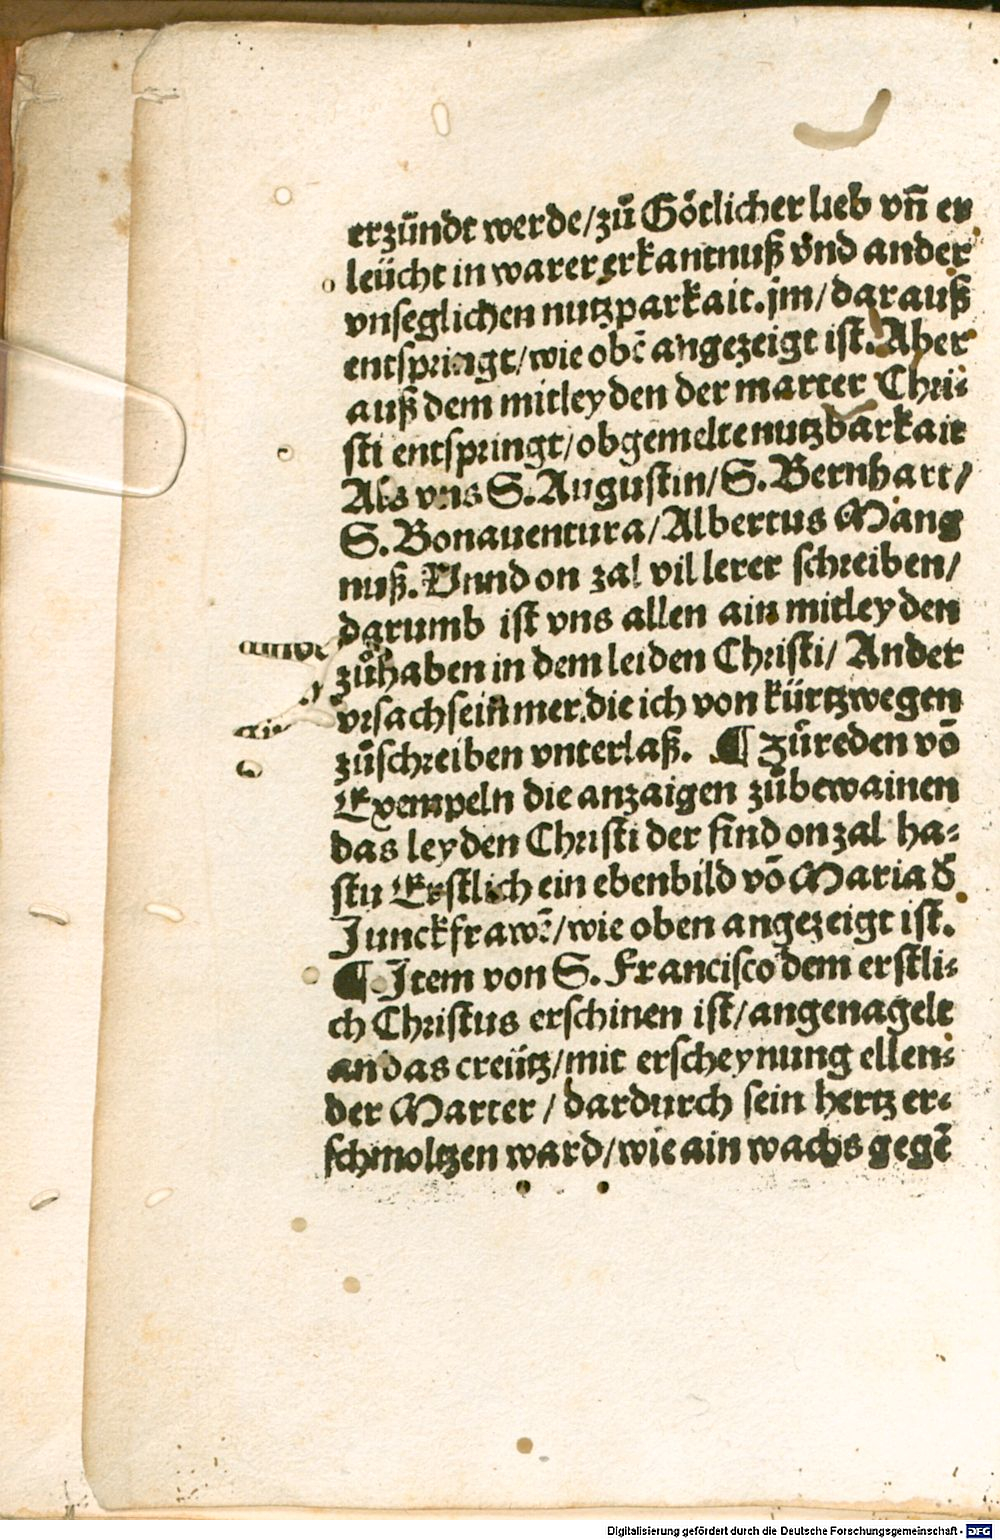 erzündt werde/zů Götlicher lieb vñ er
leücht in warer erkantnuß vnd ander
vnseglichen nutzparkait.jm/darauß
entspringt/wie obē angezeigt ist.Aber
auß dem mitleyden der marter Chri⸗
sti entspringt/obgemelte nutzbarkait
Als vns S.Augustin/S.Bernhart/
S.Bonauentura/Albertus Mang
nuß.Vnnd on zal vil lerer schreiben/
darumb ist vns allen ain mitleyden
zůhaben in dem leiden Christi/Ander
vrsach sein mer die ich von kürtzwegen
zůschreiben vnterlaß. ¶ Zůreden vō
Exempeln die anzaigen zůbewainen
das leyden Christi der find on zal ha⸗
stu Erstlich ein ebenbild vō Maria d̕
Junckfrawē/wie oben angezeigt ist.
¶ Item von S.Francisco dem erstli⸗
ch Christus erschinen ist/angenagelt
an das creütz/mit erscheynung ellen⸗
der Marter/dardurch sein hertz er⸗
schmoltzen ward/wie ain wachs gegē
Digitalisierung gefördert durch die Deutsche Forschungsgemeinschaft - DFG